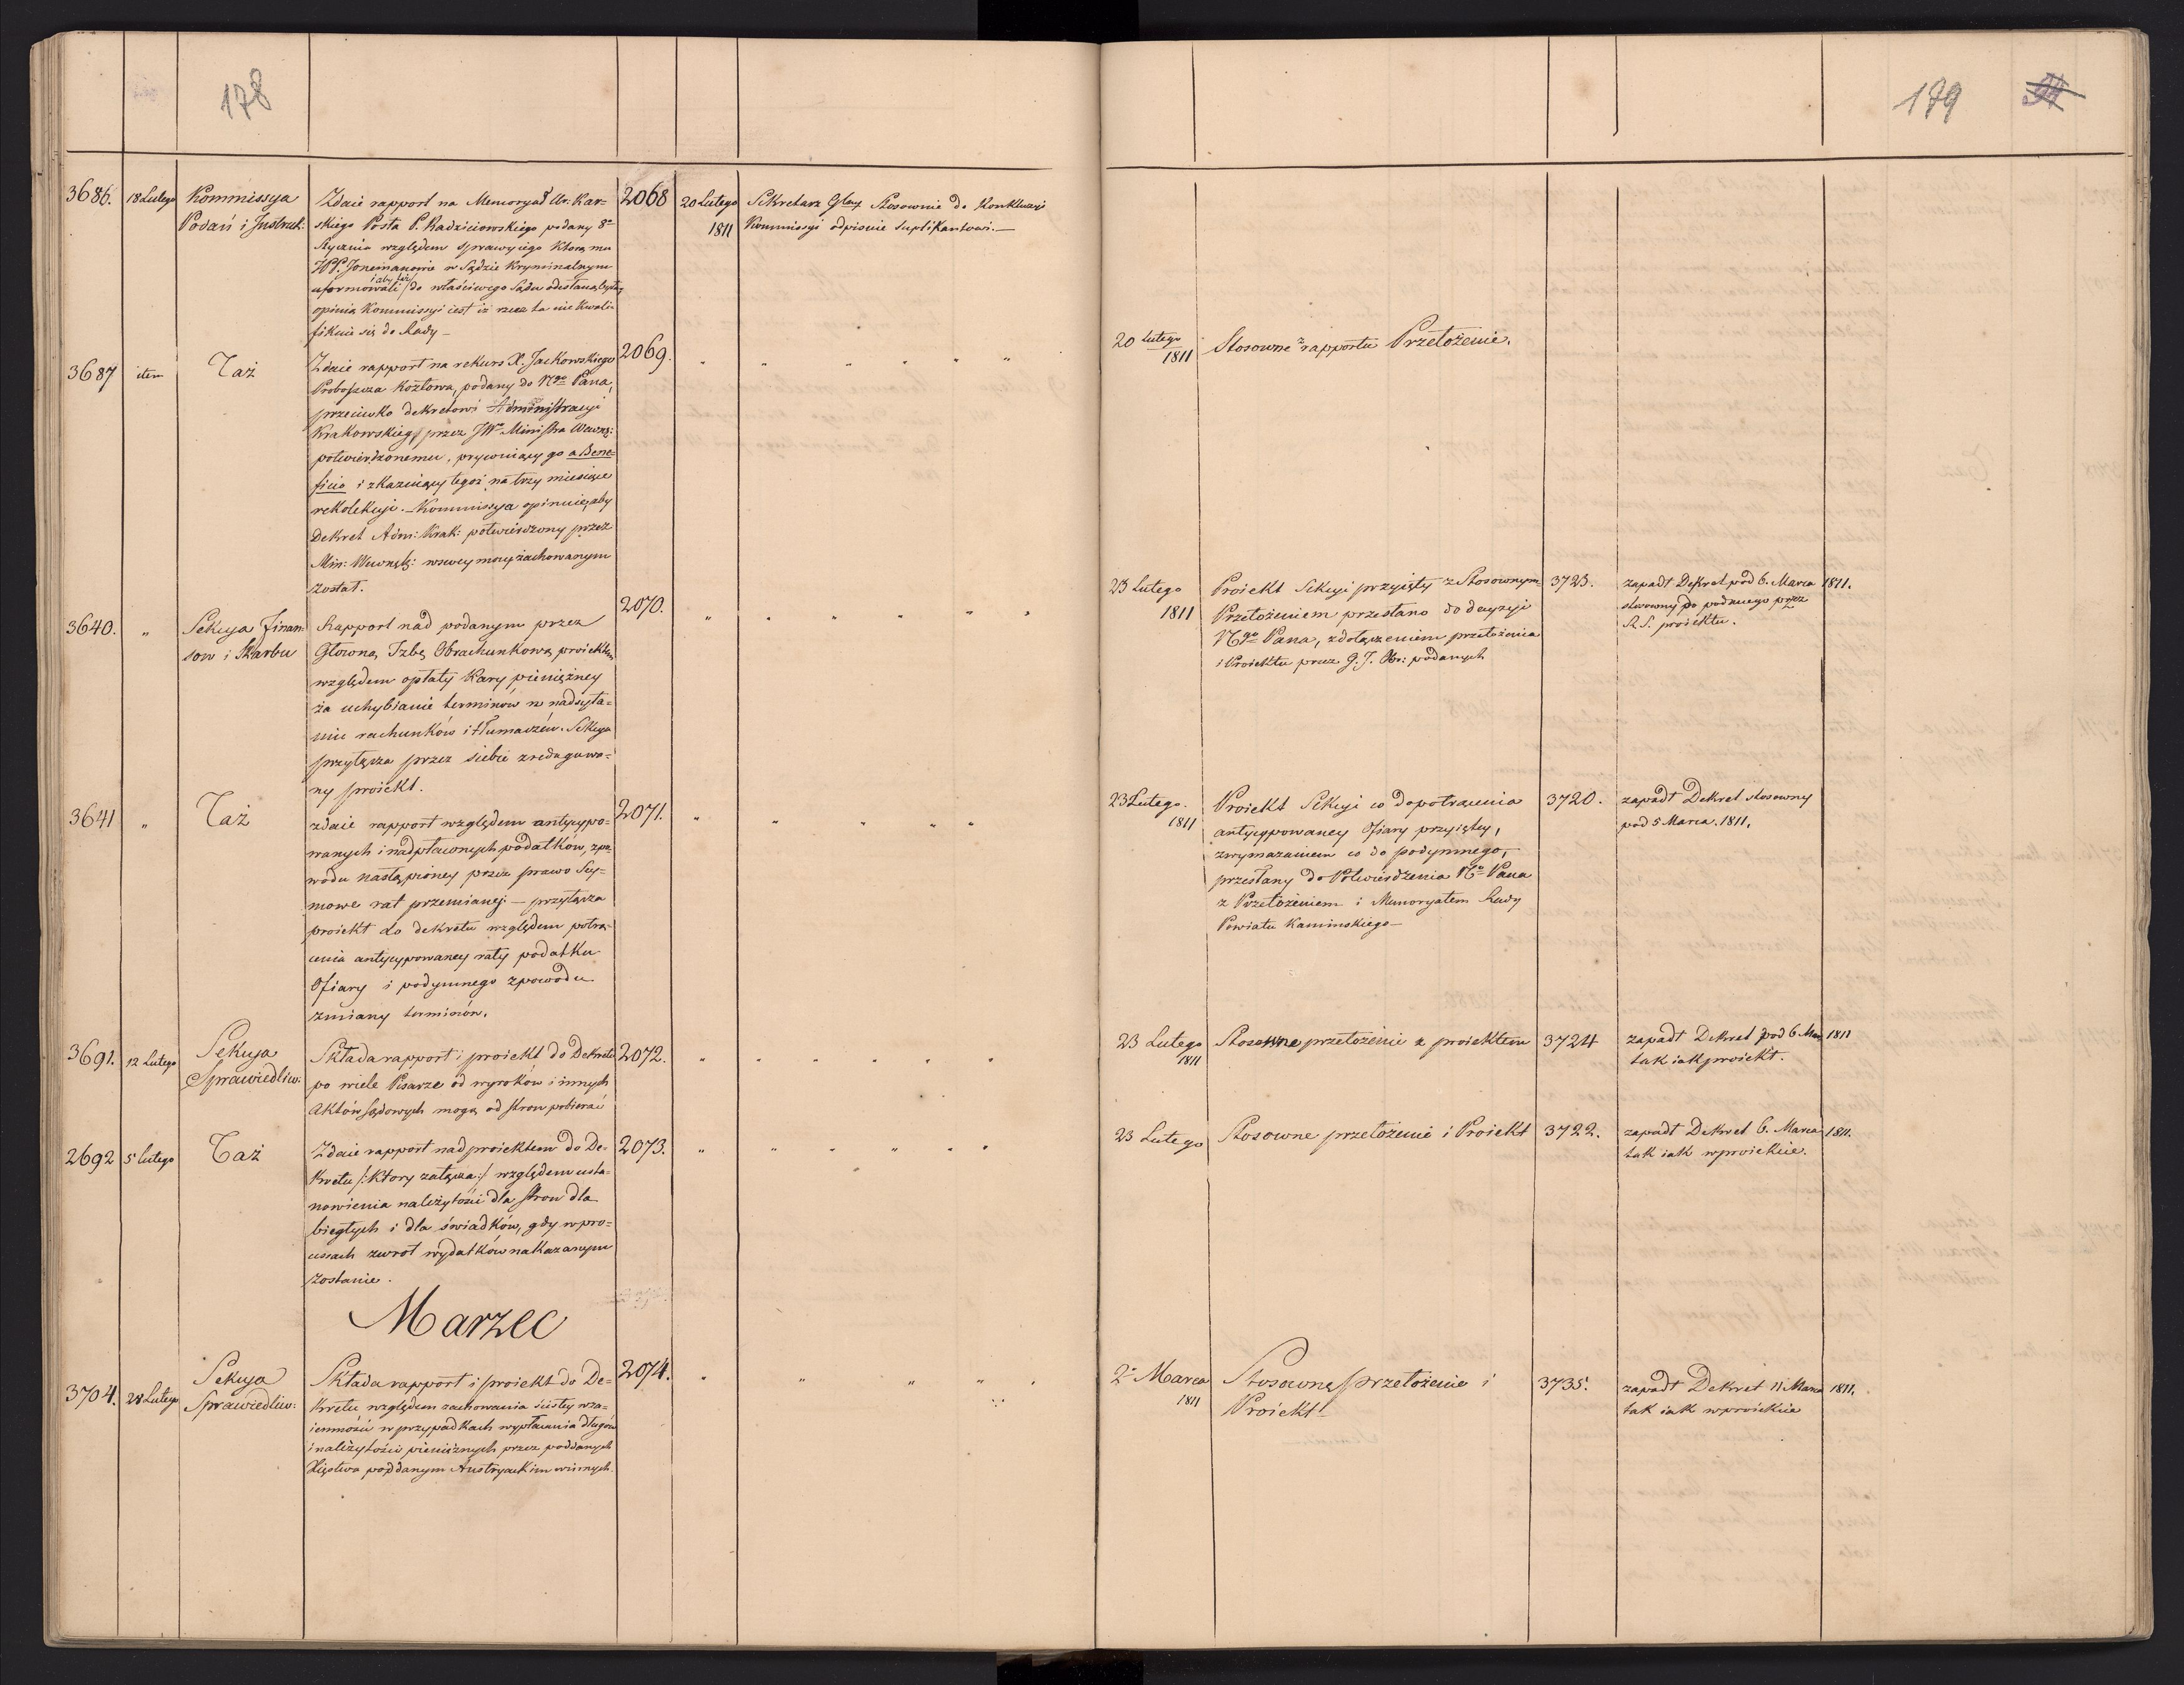 178
3686. 18 Lutego Kommissya
Podań i Instrukt:
Zdaie rapport na Memoryał Ur. Kar-
skiego Posła P. Radzieiowskiego podany 8º
Stycznia względem sprawy iego którą mu
WP. Jonemanowie w Sądzie Kryminalnym
uformowali i aby też do właściwego Sądu odesłaną była,
opinia Kommissyi iest iż rzecz ta nie kwali-
fikuie się do Rady –
2068
20 Lutego
1811
Sekretarz Głny Stosownie do Konkluzyi
Kommissyi odpisuie suplikantowi. —
3687 item Taż
Zdaie rapport na rekurs X. Jackowskiego
Proboszcza Kozłowa, podany do Ngo Pana,
przeciwko dekretowi Administracyi
Krakowskiey przez JWo Ministra Wewnę:
potwierdzonemu, prywuiący go a Bene-
ficio i skazuiący tegoż na trzy miesiące
rekolekcyi. – Kommissya opiniuie, aby
Dekret Adm: Krak: potwierdzony przez
Min: Wewnętz: w swey mocy zachowanym
został.
2069. " " " " " "
3640. " Sekcya Finan-
sow i Skarbu
Rapport nad podanym przez
Główną Izbę Obrachunkową proiektem
względem opłaty kary pieniężney
za uchybianie terminów w nadsyła-
niu rachunków i tłumaczeń. Sekcya
przyłącza przez siebie zredagowa-
ny proiekt.
2070. " " " " " "
3641 " Taż
zdaie rapport względem antycypo-
wanych i nadpłaconych podatków, z po-
wodu nastąpioney przez prawo Sey-
mowe rat przemiany: – przyłącza
proiekt do dekretu względem potrą-
cenia antycypowaney raty podatku
Ofiary i podymnego z powodu
zmiany terminów.
2071. " " " " "
3691. 12 Lutego Sekcya
Sprawiedliw:
Składa rapport i proiekt do Dekretu
po wiele Pisarze od wyroków i innych
Aktów sądowych mogą od stron pobierać
2072. " " " " " "
2692 5 Lutego Taż
Zdaie rapport nad proiektem do De-
kretu /: który załącza :/ względem usta-
nowienia należytości dla stron dla
biegłych i dla świadków, gdy w pro-
cessach zwrot wydatków nakazanym
zostanie.
2073. " " " " " "
Marzec
3704. 28 Lutego Sekcya
Sprawiedliw:
Składa rapport i proiekt do De-
kretu względem zachowania ścisłey wza-
iemności w przypadkach wypłacania długów
i należytości pieniężnych przez poddanych
Xięstwa poddanym Austryackim winnych.
2074. " " " " "
179
20 Lutego
1811
Stosowne z rapportu Przełożenie.
23 Lutego
1811
Proiekt Sekcyi przyięty z Stosownym
Przełożeniem przesłano do decyzyi
Ngo Pana, z dołączeniem przełożenia
i Proiektu przez G. I. Obr: podanych
3723. zapadł Dekret pod 6. Marca 1811.
stosowny do podanego przez
R. S. proiektu.
23 Lutego.
1811
Proiekt Sekcyi co do potrącenia
antycypowaney Ofiary przyięty,
z wymazaniem co do podymnego,
przesłany do Potwierdzenia No Pana
z Przełożeniem i Memoryałem Rady
Powiatu Kaminskiego –
3720. zapadł Dekret stosowny
pod 5 Marca. 1811.
23 Lutego
1811
Stosowne przełożenie z proiektem
3724 zapadł Dekret pod 6 Mar 1811
tak iak proiekt.
23 Lutego Stosowne przełożenie i Proiekt
3722. zapadł Dekret 6. Marca 1811.
tak iak w proiekcie.
2º Marca
1811
Stosowne przełożenie i
Proiekt
3735. zapadł Dekret 11 Marca 1811.
tak iak w proiekcie